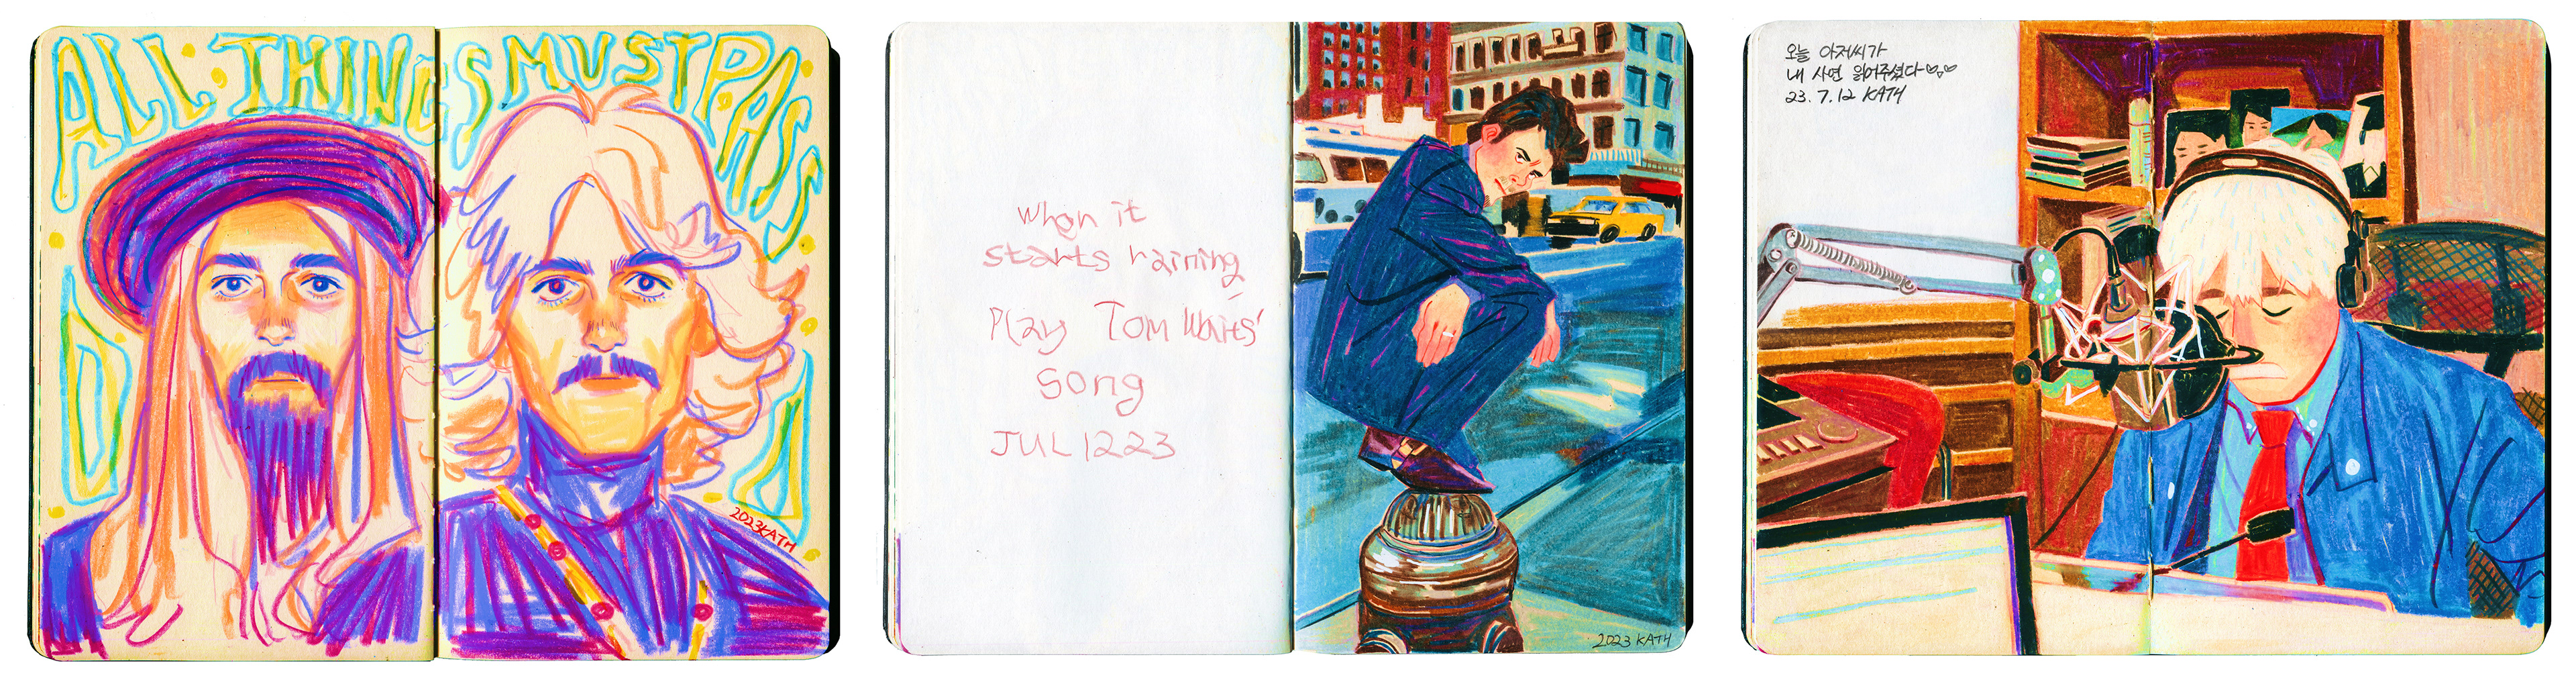 ALL THINGS MUST PASS
2023 KATH
When it
starts raining
Play Tom Waits'
song
JUL 12 23
2023 KATH
오늘 아저씨가
내 사연 읽어주셨다♡♡
23. 7. 12 KATH